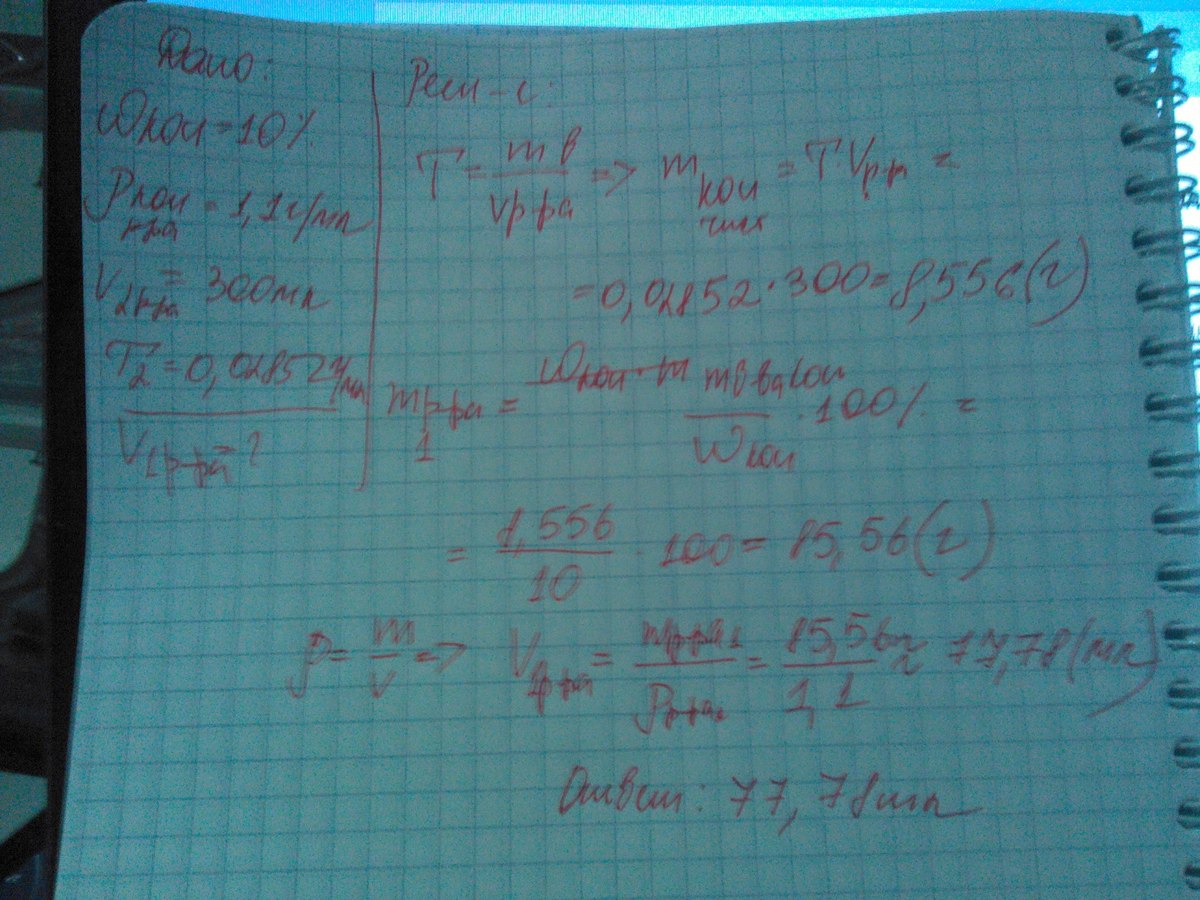 Дано:
ω KOH = 10%
ρ KOH р-ра = 1,1 г/мл
V 2р-ра = 300 мл
T2 = 0,02852 г/мл
V 1р-ра = ?
Реш-е:
T = m в / V р-ра => m KOH чист = T V р-р =
= 0,02852 · 300 = 8,556 (г)
m р-ра 1 = m в-ва KOH / ω KOH · 100% =
= 8,556 / 10 · 100 = 85,56 (г)
ρ = m / V => V 1р-ра = m р-ра 1 / ρ р-ра 1 = 85,56 / 1,1 ≈ 77,78 (мл)
Ответ: 77,78 мл